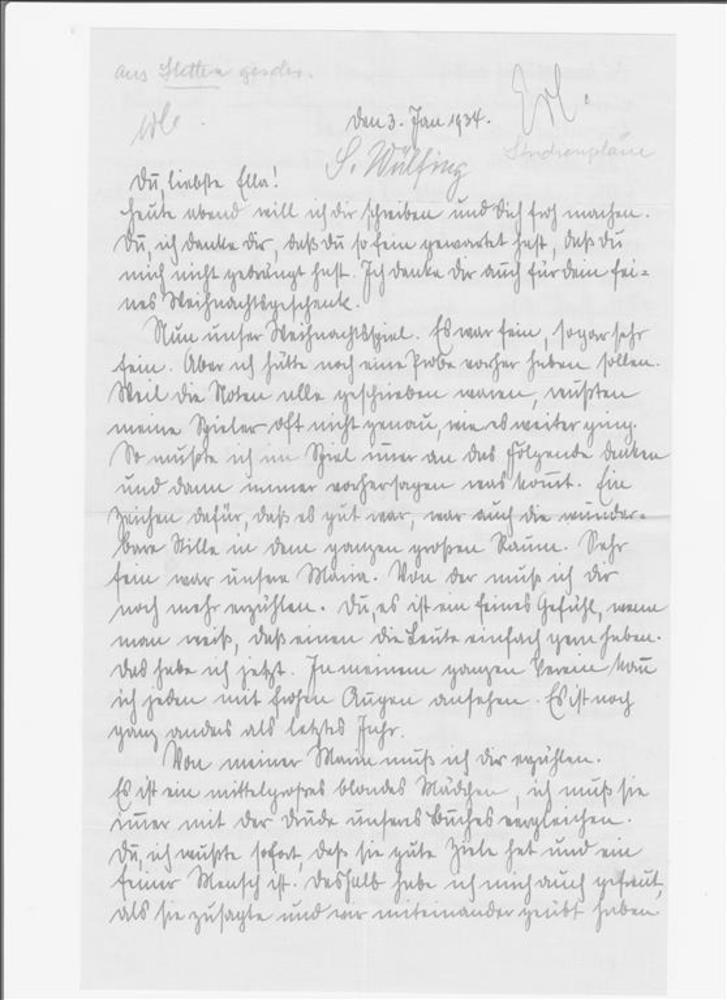 aus Stetten
den 3. Jan 1934.
S. Wülfing
Studienpläne
Du, liebste Ella!
Heute abend will ich dir schreiben und dich froh machen.
Du, ich danke dir, daß du so fein gewartet hast, daß du
mich nicht gedrängt hast. Ich danke dir auch für dein fei=
nes Weihnachtsgeschenk.
Nun unser Weihnachtsspiel. Es war fein, sogar sehr
fein. Aber ich hätte noch eine Probe vorher haben sollen.
Weil die Noten alle geschrieben waren, wußten
meine Spieler oft nicht genau, wie es weiter ging.
So mußte ich im Spiel im̄er an das Folgende denken
und dann immer vorhersagen was kom̄t. Ein
Zeichen dafür, daß es gut war, war auch die wunder=
bare Stille in dem ganzen großen Raum. Sehr
fein war unsere Maria. Von der muß ich dir
noch mehr erzählen. Du, es ist ein feines Gefühl, wenn
man weiß, daß einen die Leute einfach gern haben.
Das habe ich jetzt. In meinem ganzen Verein kan̄
ich jeden mit frohen Augen ansehen. Es ist noch
ganz anders als letztes Jahr.
Von meiner Maria muß ich dir erzählen.
Es ist ein mittelgroßes blondes Mädchen, ich muß sie
im̄er mit der Drude unseres Buches vergleichen.
Du, ich wußte sofort, daß sie gute Ziele hat und ein
feiner Mensch ist. Deshalb habe ich mich auch gefreut,
als sie zusagte und wir miteinander geübt haben